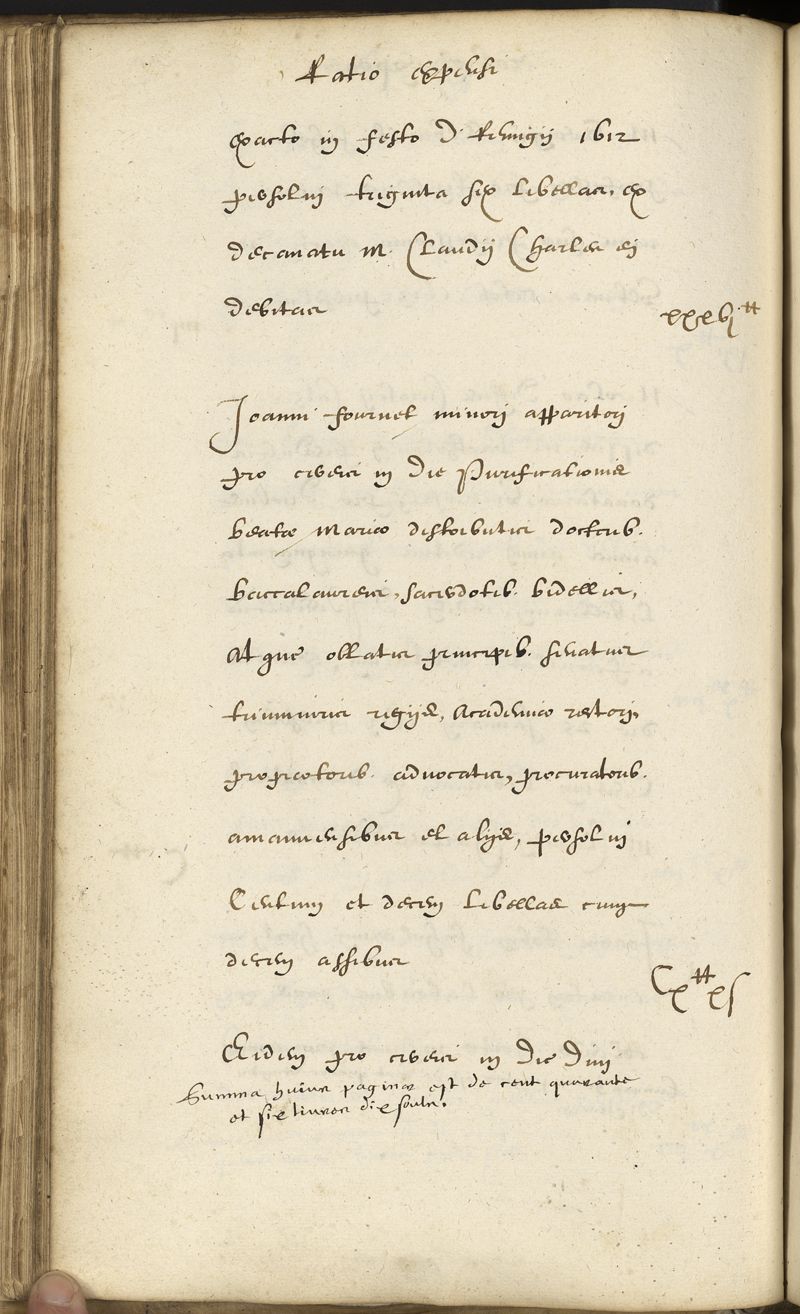 Ratio expensi
exacto in festo D. Remigii 1612
persolvi triginta sex libellas, ex
decanatu M. Claudii Charles ei
debitas
xxxvj ᵗᵗ
Joanni fournel minori apparitori
pro cereis in die Purificationis
beatæ Mariæ distributis doctorib.
baccalaureis, sacerdotib. bidellis,
atque oblatis principib. senatus
triumviris regiis, Academiæ rectori,
propraetorib. advocatis, procuratorib.
amanuensibus et aliis, persolvi
Centum et decem libellas cum
decem assibus
Cx ᵗᵗ xs
Eidem pro cereis in die Divi
Summa huius paginæ est de cent quarante
et six livres dix soulz.